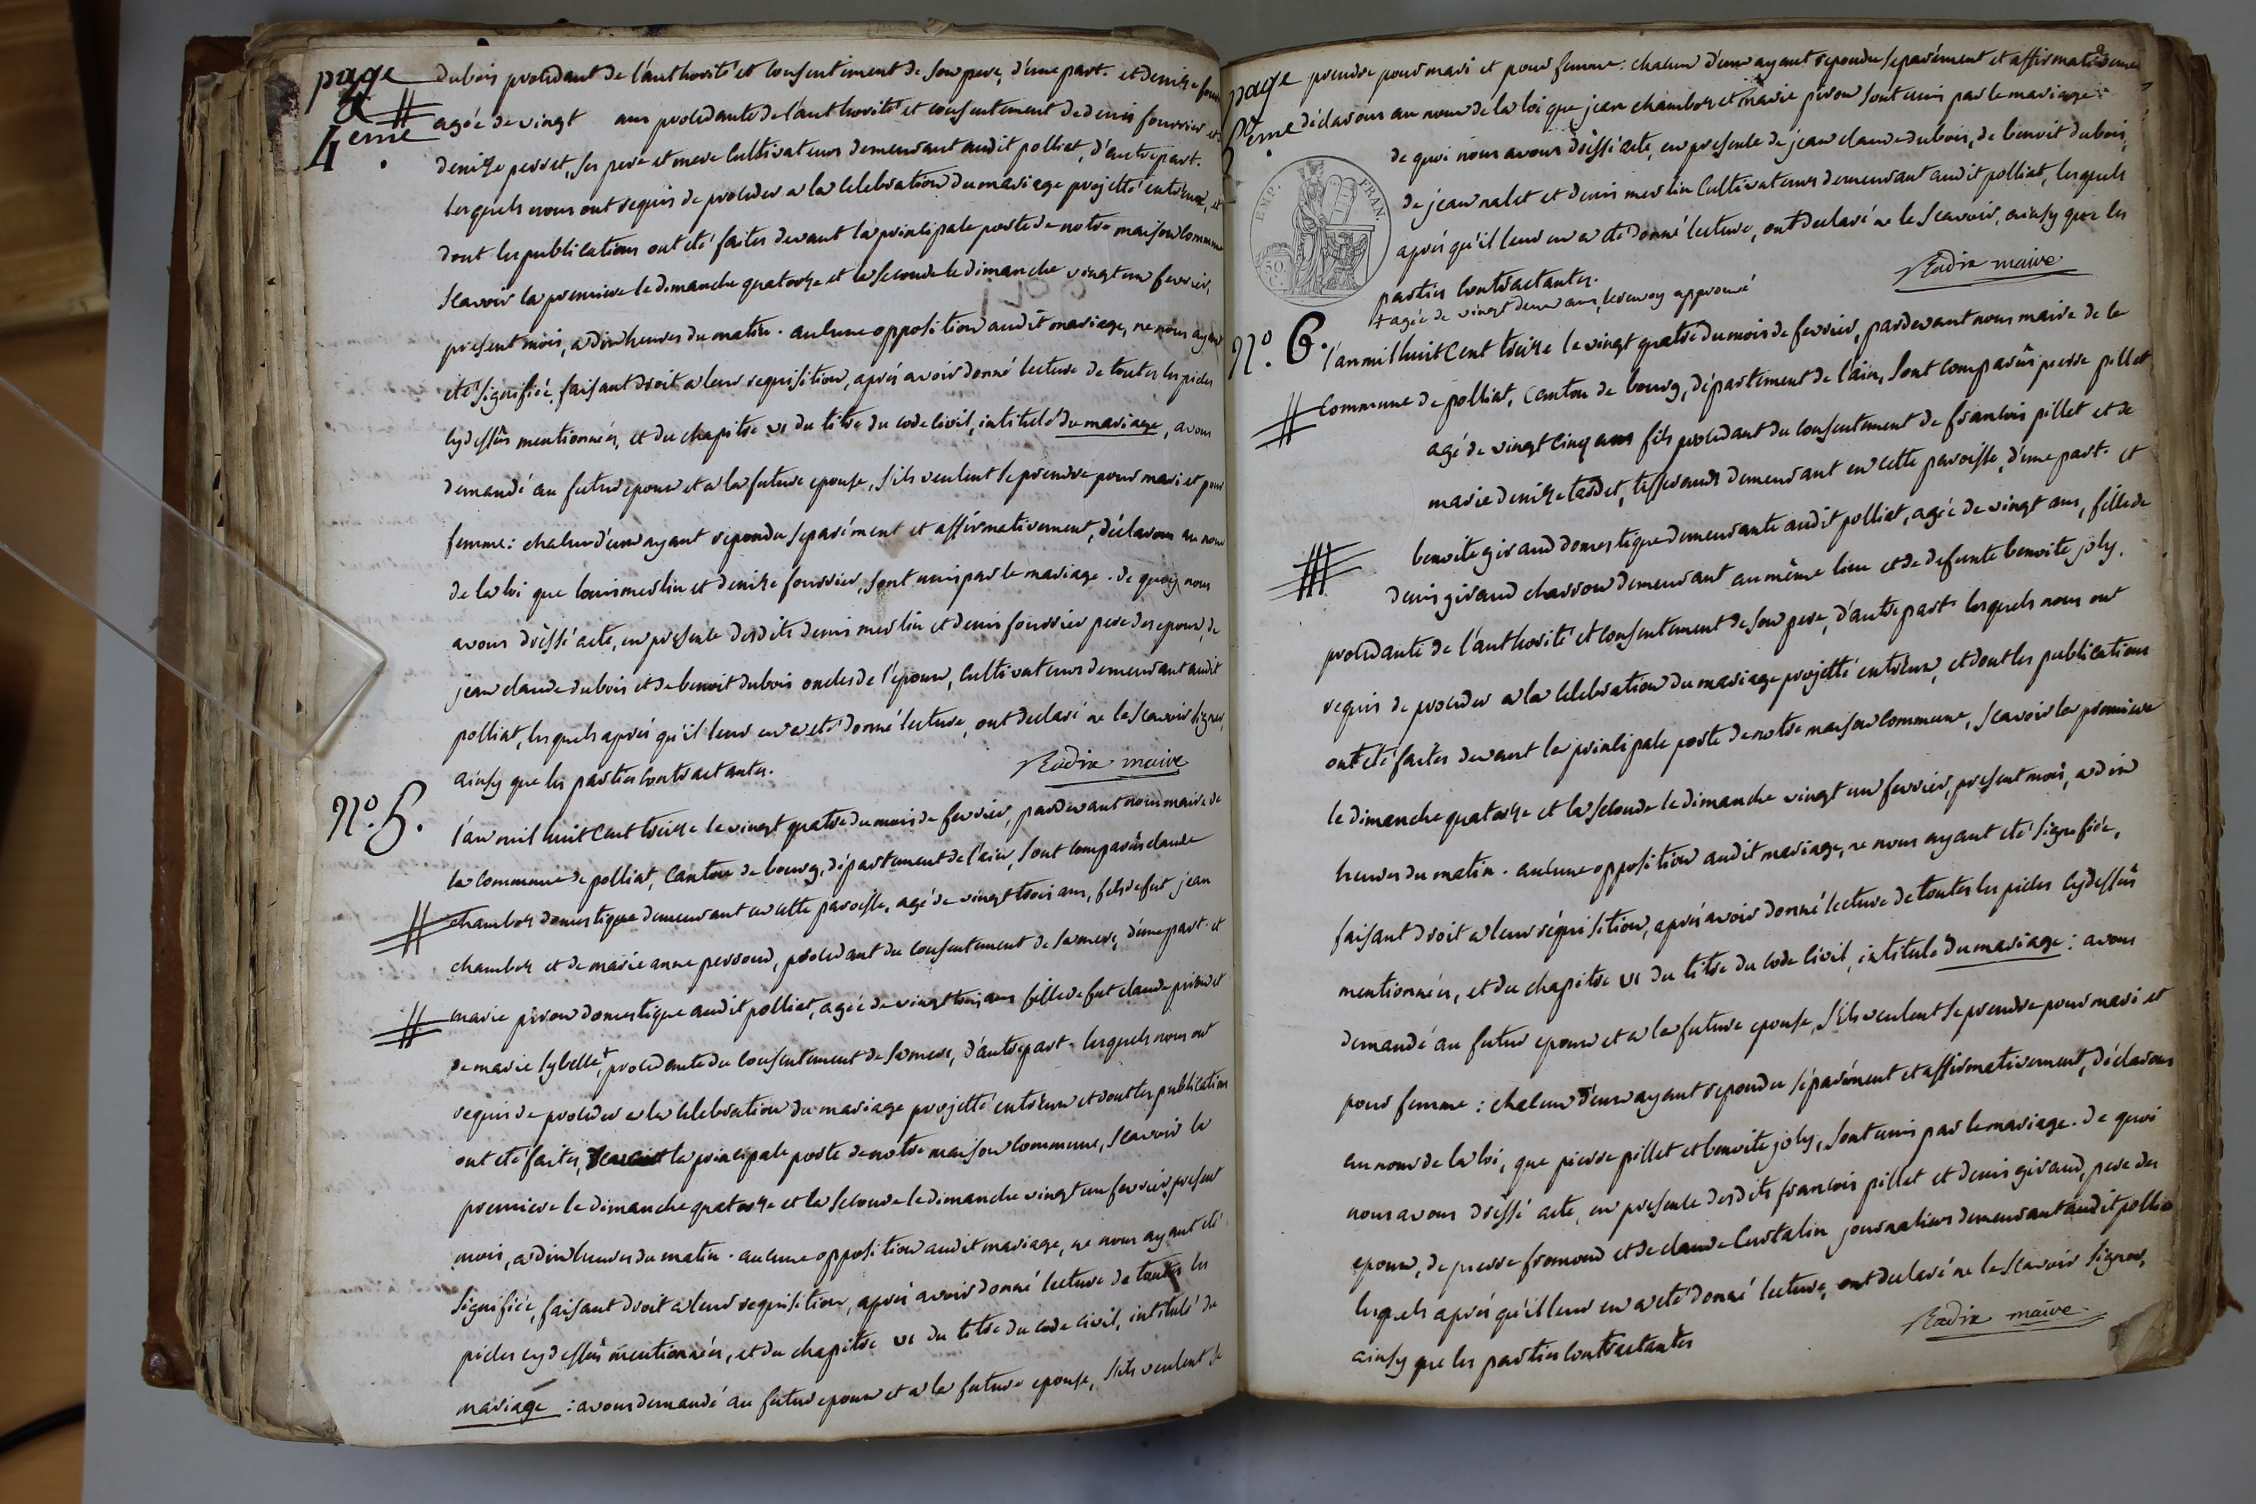 page
4eme
dubois procedant de l'authorité et consentement de son pere, d'une part. et denize
agée de vingt ans procedante de l'authorité et consentement de denis fourrier et
denize perret, ses pere et mere cultivateurs demeurant audit polliat, d'autre part.
lesquels nous ont requis de proceder a la celebration du mariage projetté entr'eux, et
dont les publications ont eté faites devant la principale porte de notre maison commune
scavoir la premiere le dimanche quatorze et la seconde le dimanche vingt un fevrier,
present mois, a dix heures du matin. aucune opposition audit mariage, ne nous ayant
eté signifiée, faisant droit a leur requisition, aprés avoir donné lecture de toutes les pieces
cy dessûs mentionnées, et du chapitre VI du titre du code civil, intitulé du mariage, avons
demandé au futur epoux et a la future epouse, s'ils veulent se prendre pour mari et pour
femme: chacun d'eux ayant repondu separément et affirmativement, déclarons au nom
de la loi que louis merlin et denize fourrier, sont unis par le mariage. de quoy nous
avons dréssé acte, en presence desdits denis merlin et denis fourrier pere des epoux, de
jean claude dubois et de benoit dubois oncles de l'epoux, cultivateurs demeurant audit
polliat, lesquels aprés qu'il leur en a eté donné lecture, ont declaré ne le scavoir signer,
ainsy que les parties contractantes.
maire
No. 5.
l'an mil huit cent treize le vingt quatre du mois de fevrier, pardevant nous maire de
la commune de polliat, canton de bourg, département de l'ain, sont comparûs claude
chambos domestique demeurant en cette paroisse, agé de vingt trois ans, fils de fut jean
chambos et de marie anne perroud, procedant du consentement de sa mere, d'une part. et
marie piron domestique audit polliat, agée de vingt trois ans fille de fut claude piron et
de marie sybelle+, procedante du consentement de sa mere, d'autre part. lesquels nous ont
requis de proceder a la celebration du mariage projetté entr'eux et dont les publications
ont eté faites, la principale porte de notre maison commune, scavoir la
premiere le dimanche quatorze et la seconde le dimanche vingt un fevrier, present
mois, a dix heures du matin. aucune opposition audit mariage, ne nous ayant eté
signifiée, faisant droit a leur requisition, aprés avoir donné lecture de toutes les
pieces cy dessûs mentionnées, et du chapitre VI du titre du code civil, intitulé du
mariage: avons demandé au futur epoux et a la future epouse, s'ils veulent se
page
5eme
prendre pour mari et pour femme: chacun d'eux ayant repondu separément et affirmativement
déclarons au nom de la loi que jean chambos et marie piron sont unis par le mariage.
de quoi nous avons dréssé acte, en presence de jean claude dubois, de benoit dubois,
de jean nalet et denis merlin cultivateurs demeurant audit polliat, lesquels
aprés qu'il leur en a eté donné lecture, ont declaré ne le scavoir, ainsy que les
parties contractantes.
maire
+ agée de vingt deux ans, le renvoy approuvé
EMP. FRAN.
50 C.
No. 6.
l'an mil huit cent treize le vingt quatre du mois de fevrier, pardevant nous maire de la
commune de polliat, canton de bourg, département de l'ain, sont comparûs pierre pillet
agé de vingt cinq ans fils procedant du consentement de francois pillet et de
marie denize tardet, tisserands demeurant en cette paroisse, d'une part. et
benoite giraud domestique demeurante audit polliat, agée de vingt ans, fille de
denis giraud charron demeurant au même lieu et de defunte benoite joly.
procedante de l'authorité et consentement de son pere, d'autre part. lesquels nous ont
requis de proceder a la celebration du mariage projetté entr'eux, et dont les publications
ont eté faites devant la principale porte de notre maison commune, scavoir la premiere
le dimanche quatorze et la seconde le dimanche vingt un fevrier, present mois, a dix
heures du matin. aucune opposition audit mariage, ne nous ayant eté signifiée,
faisant droit a leur réquisition, aprés avoir donné lecture de toutes les pieces cy dessûs
mentionnées, et du chapitre VI du titre du code civil, intitulé du mariage: avons
demandé au futur epoux et a la future epouse, s'ils veulent se prendre pour mari et
pour femme: chacun d'eux ayant repondu séparément et affirmativement, déclarons
au nom de la loi, que pierre pillet et benoite joly, sont unis par le mariage. de quoi
nous avons dréssé acte, en presence desdits francois pillet et denis giraud, pere des
epoux, de pierre fromond et de claude curtalin journaliers demeurant audit polliat
lesquels aprés qu'il leur en a eté donné lecture, ont declaré ne le scavoir signer,
ainsy que les parties contractantes
maire